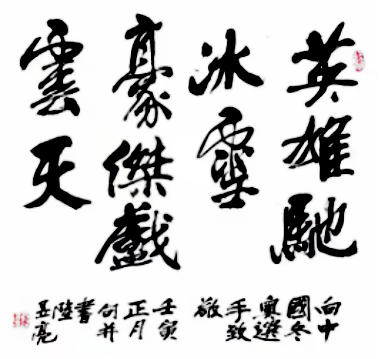 英雄馳
冰雪
豪傑戲
雲天
向中
國冬
奧選
手致
敬
壬寅
正月
句并
書
陸
亮